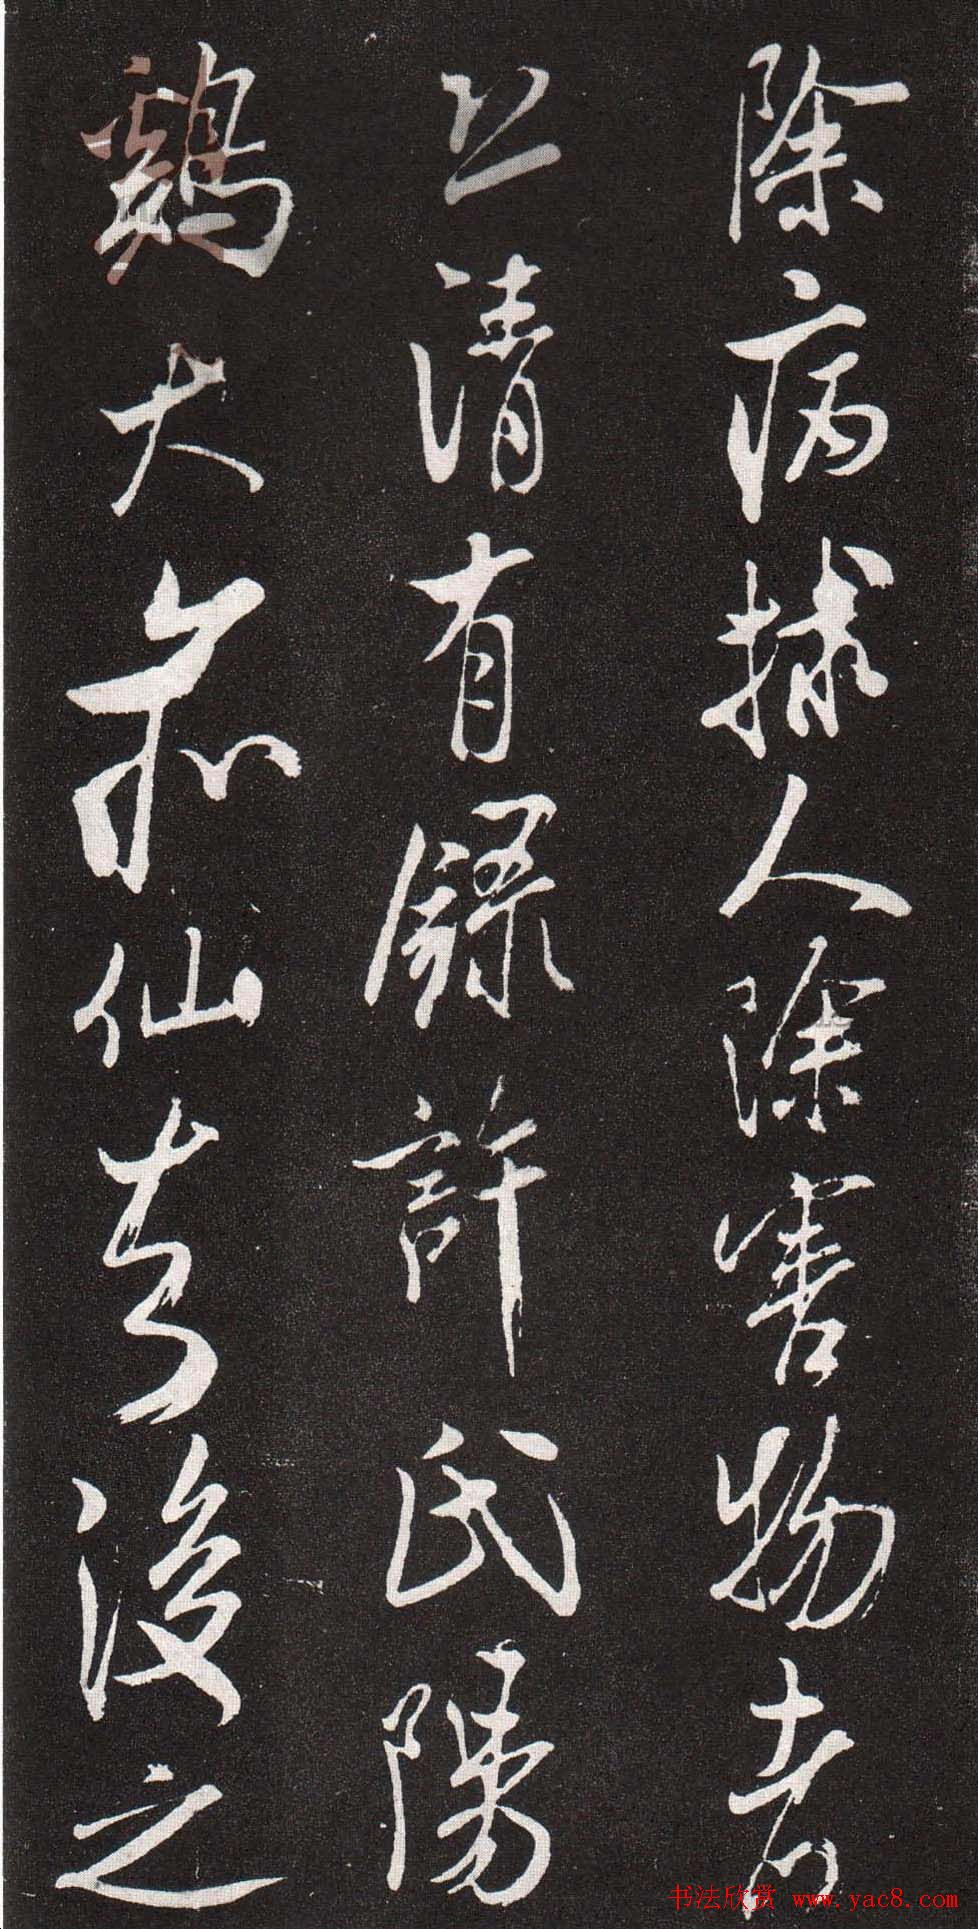 除病捄人除害物者
上清有錄許氏陽
鷄犬亦仙去後之
书法欣赏 www.yac8.com